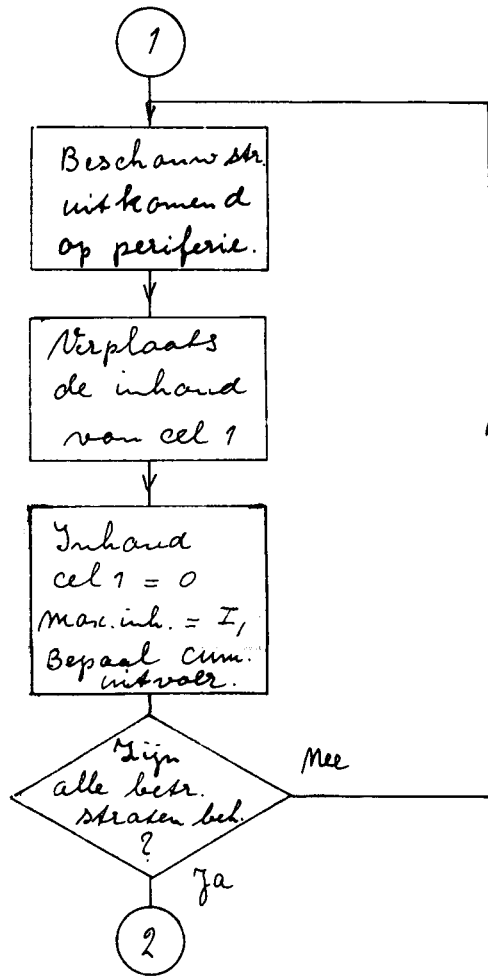 1
Beschouw str.
uitkomend
op periferie.
Verplaats
de inhoud
van cel 1
Inhoud
cel 1 = 0
max.inh. = I,
Bepaal cum.
uitvoer.
Zijn
alle betr.
straten beh.
?
Nee
Ja
2